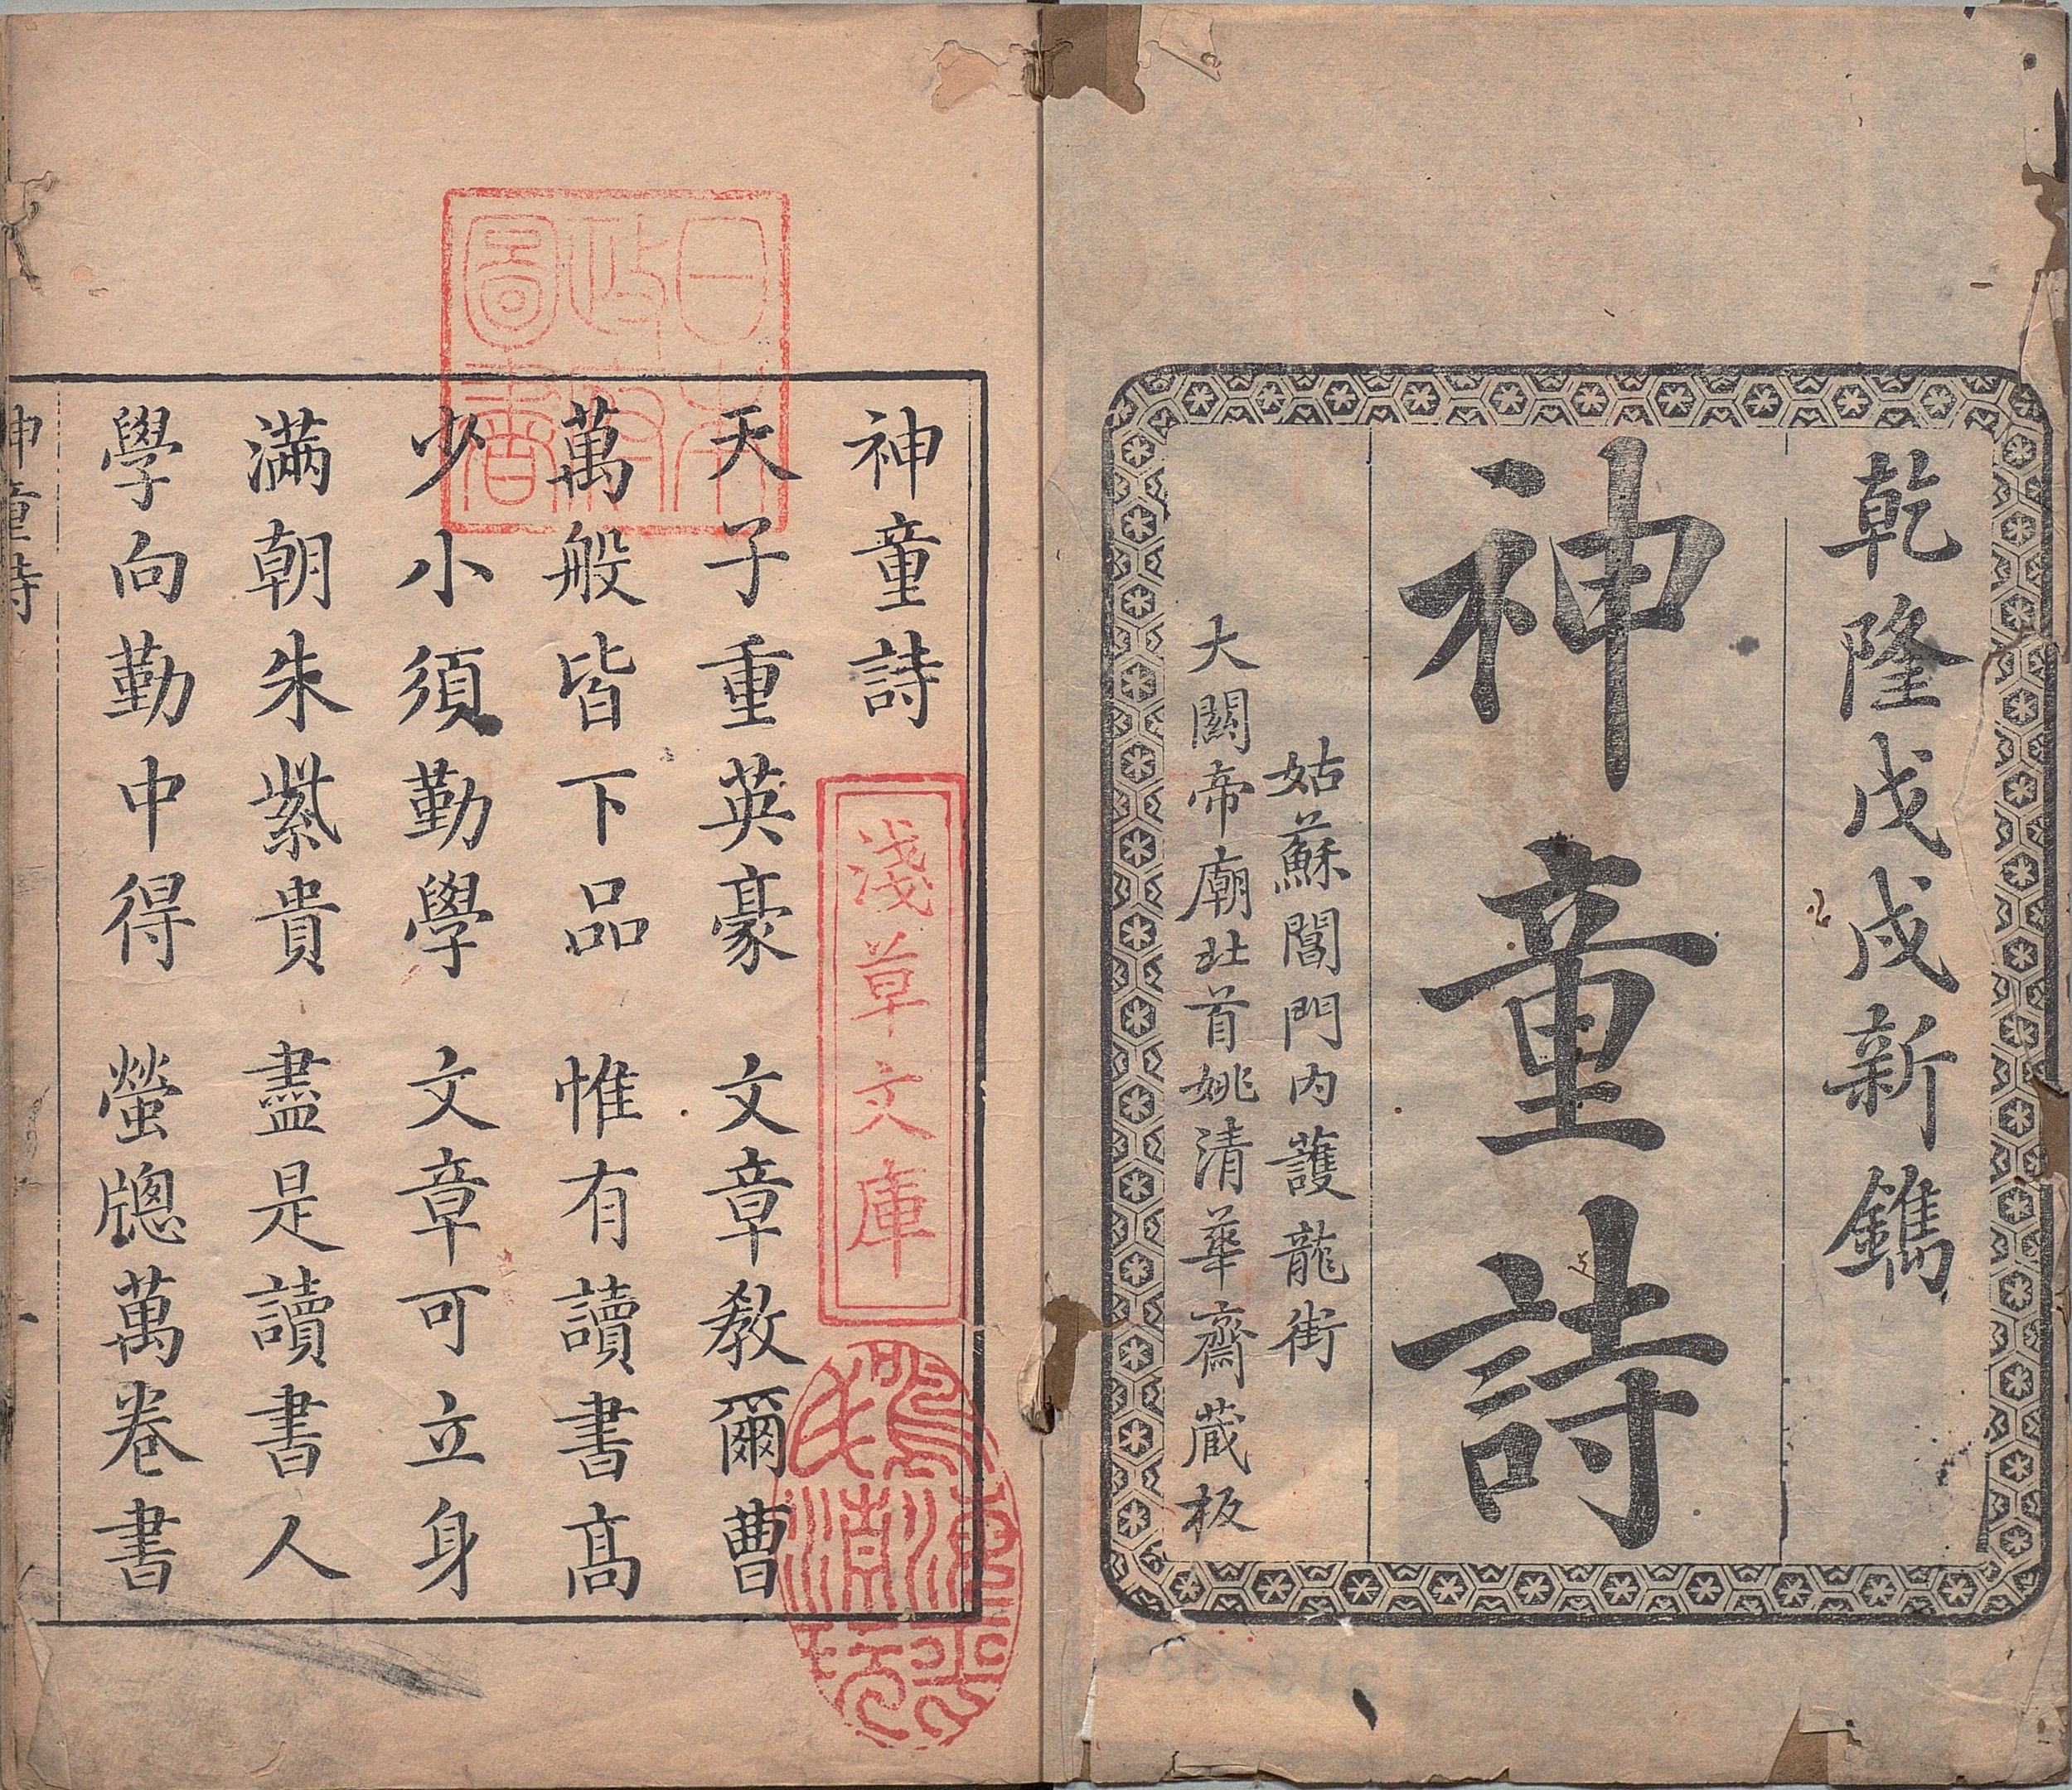 乾隆戊戌新鐫
神童詩
姑蘇閶門内護龍街
大關帝廟北首姚清華齋藏板
神童詩
天子重英豪 文章教爾曹
萬般皆下品 惟有讀書高
少小須勤學 文章可立身
滿朝朱紫貴 盡是讀書人
學向勤中得 螢牕萬卷書
神童詩
一
日本
政府
圖書
淺草文庫